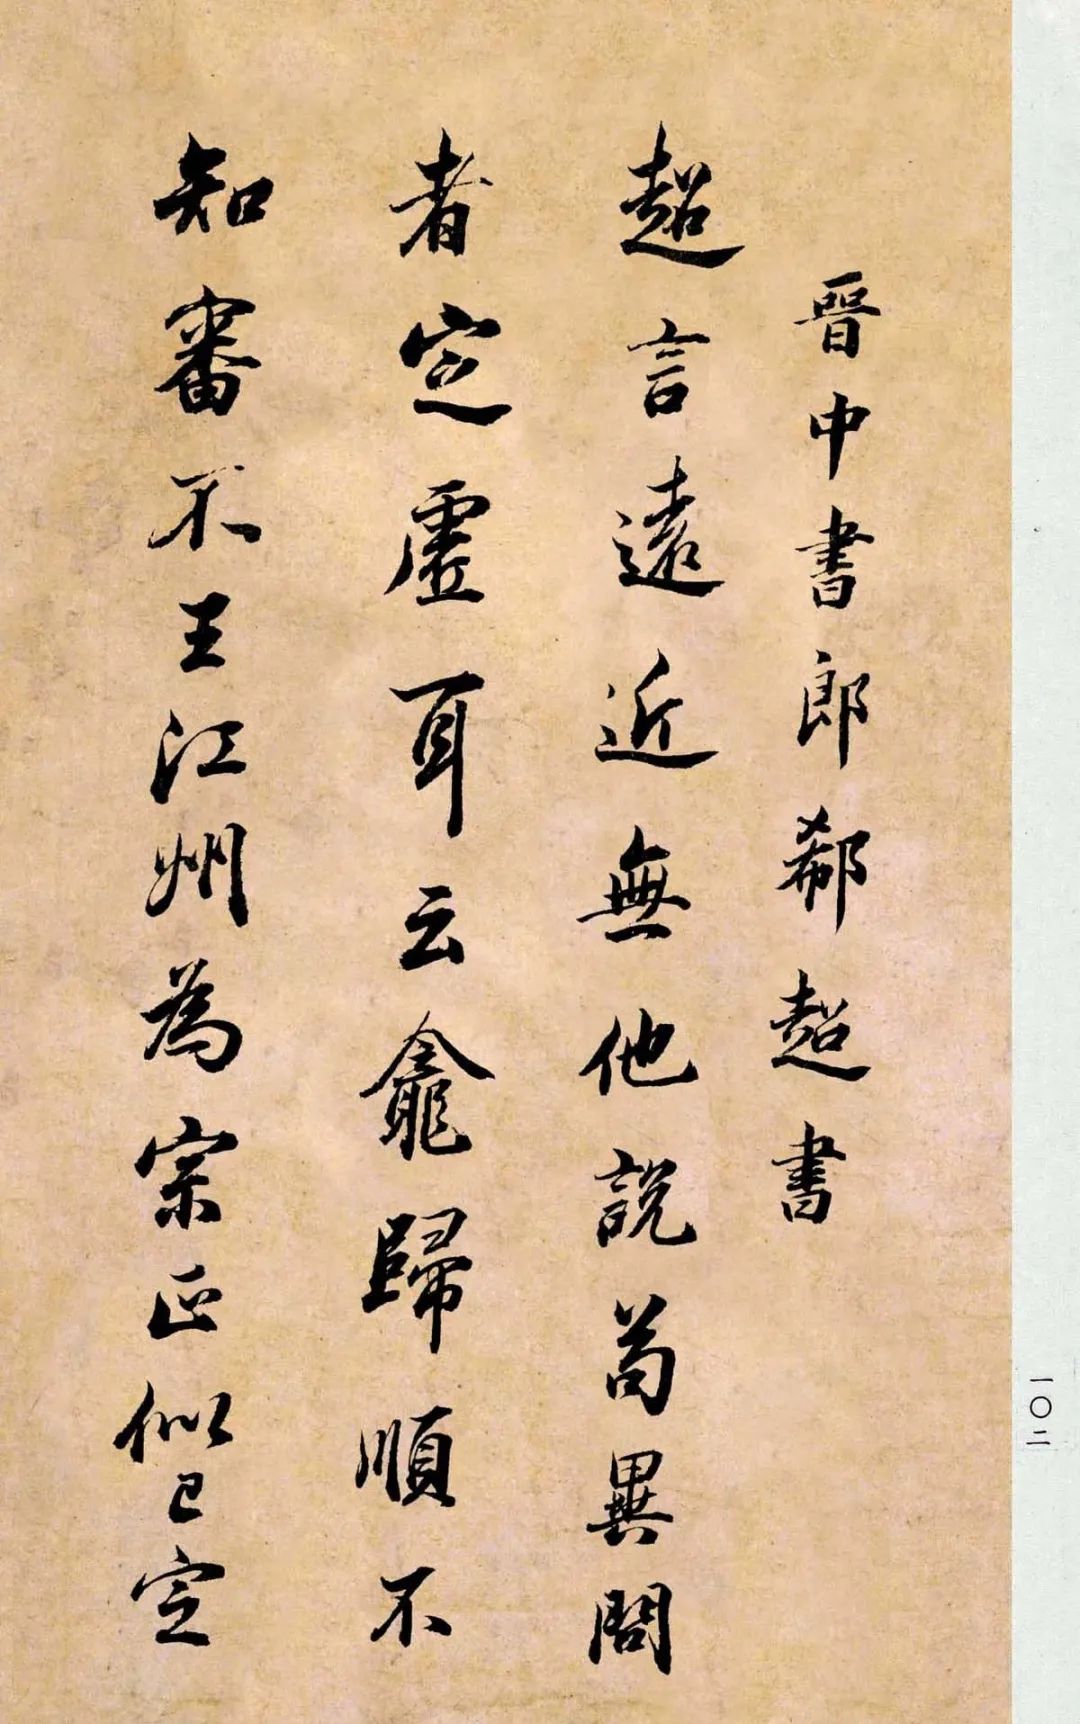 晉中書郎郗超書
超言遠近無他說苟異問
者定虛耳云龕歸順不
知審不王江州為宗正似已定
一〇二